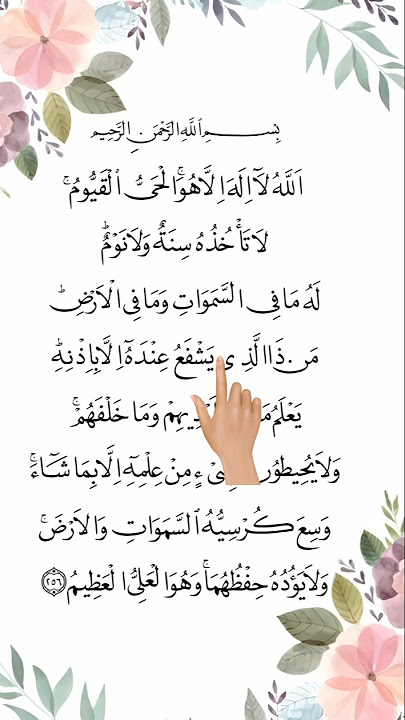 بِسْمِ اللَّهِ الرَّحْمَنِ الرَّحِيمِ
اَللَّهُ لَآ اِلَهَ اِلَّا هُوَۚ الْحَىُّ الْقَيُّومُۚ
لَا تَأْخُذُهُ سِنَةٌ وَلَا نَوْمٌۜ
لَهُ مَا فِى السَّمَوَاتِ وَمَا فِى الْاَرْضِۜ
مَنْ ذَا الَّذِى يَشْفَعُ عِنْدَهُٓ اِلَّا بِاِذْنِهِۜ
يَعْلَمُ وَمَا خَلْفَهُمْۚ
مِنْ عِلْمِهِٓ اِلَّا بِمَا شَٓاءَۚ
وَسِعَ كُرْسِيُّهُ السَّمَوَاتِ وَالْاَرْضَۚ
وَلَا يَؤُدُهُ حِفْظُهُمَاۚ وَهُوَ الْعَلِىُّ الْعَظِيمُ ٢٥٦